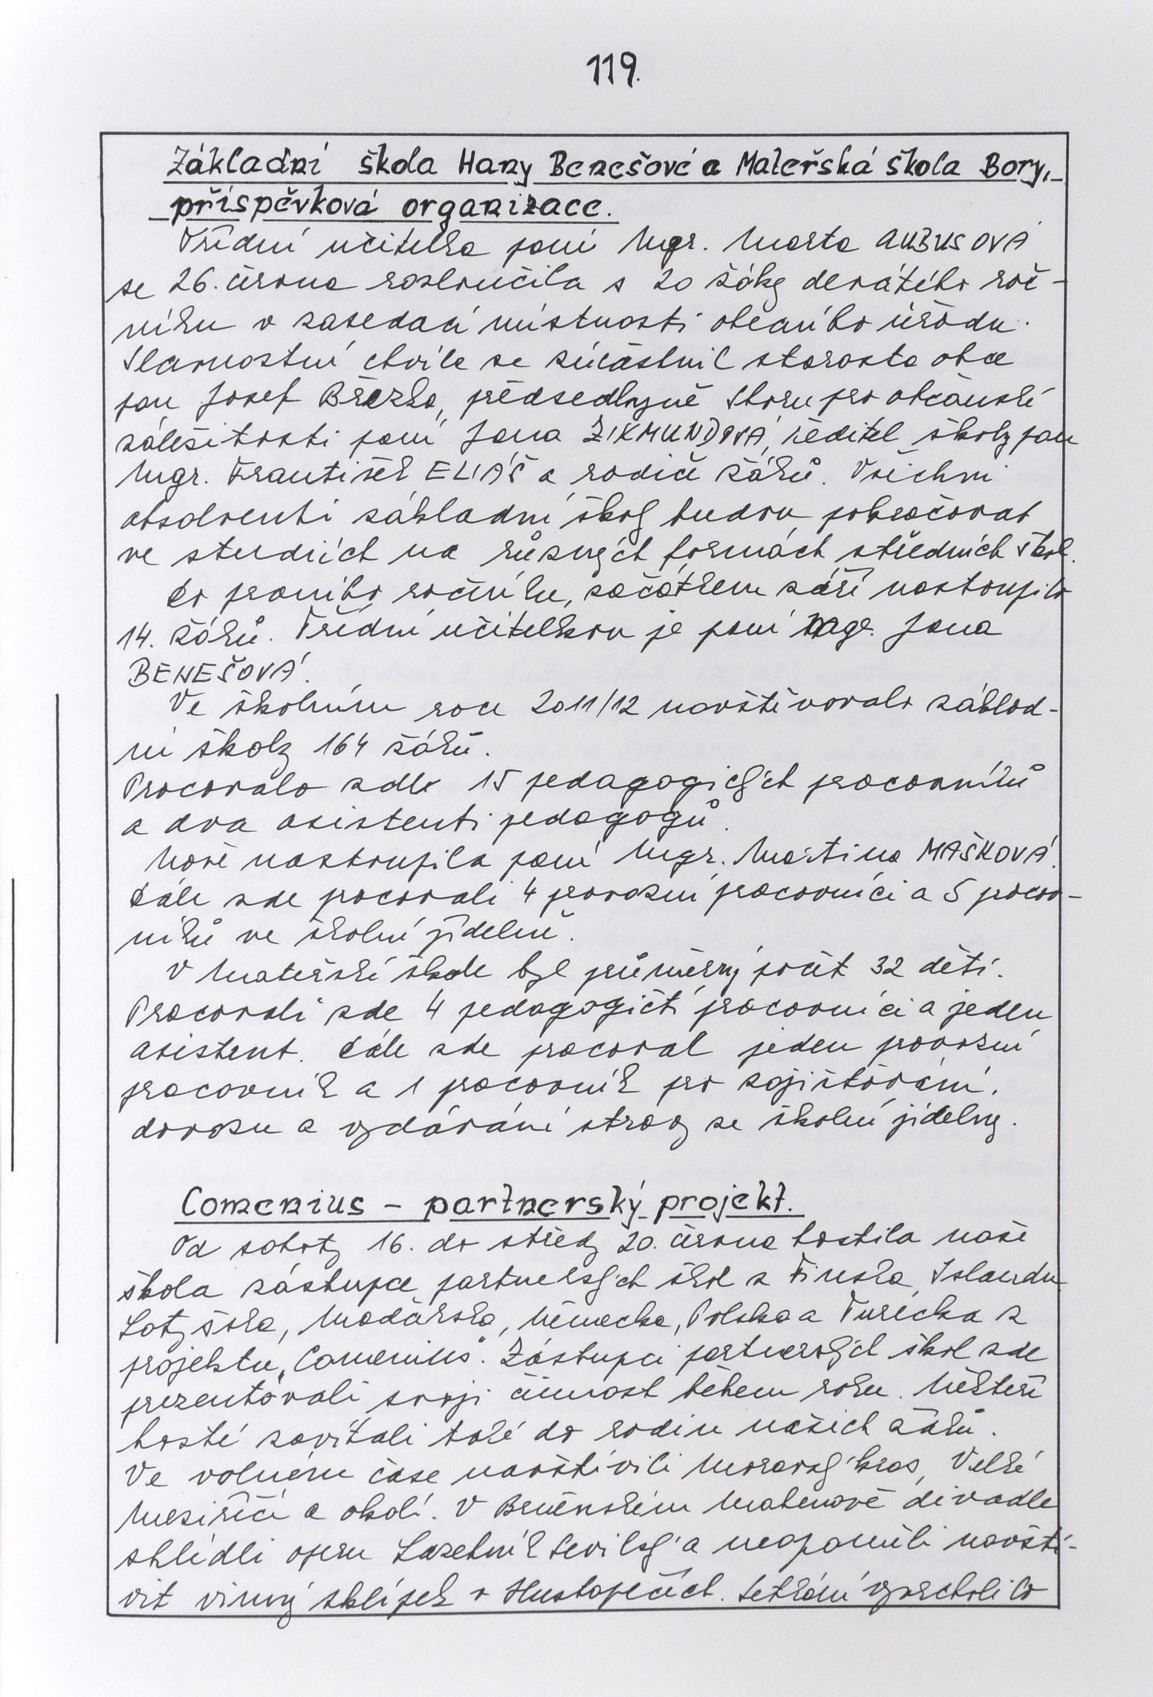 119.
Základní škola Hany Benešové a Mateřská škola Bory,
příspěvková organizace.
Třídní učitelka paní Mgr. Marta AUBUSOVÁ
se 26. června rozloučila s 20 žáky devátého roč-
níku v zasedací místnosti obecního úřadu.
Slavnostní chvíle se zúčastnil starosta obce
pan Josef Březka, předsedkyně Sboru pro občanské
záležitosti paní Jana ZIKMUNDOVÁ, ředitel školy pan
Mgr. František ELIÁŠ a rodiče žáků. Všichni
absolventi základní školy budou pokračovat
ve studiích na různých formách středních škol.
Do prvního ročníku, začátkem září nastoupilo
14. žáků. Třídní učitelkou je paní Mgr. Jana
BENEŠOVÁ.
Ve školním roce 2011/12 navštěvovalo základ-
ní školy 164 žáků.
Pracovalo zde 15 pedagogických pracovníků
a dva asistenti pedagogů.
Nově nastoupila paní Mgr. Martina MAŠKOVÁ.
Dále zde pracovali 4 provozní pracovníci a 5 pracov-
níků ve školní jídelně.
V Mateřské škole byl průměrný počet 32 dětí.
Pracovali zde 4 pedagogičtí pracovníci a jeden
asistent. Dále zde pracoval jeden provozní
pracovník a 1 pracovník pro zajišťování
dovozu a vydávání stravy ze školní jídelny.
Comenius - partnerský projekt.
Od soboty 16. do středy 20. června hostila naše
škola zástupce partnerských škol z Finska, Islandu
Lotyšska, Maďarska, Německa, Polska a Turecka z
projektu „Comenius". Zástupci partnerských škol zde
prezentovali svoji činnost během roku. Někteří
hosté zavítali také do rodin našich žáků.
Ve volném čase navštívili Moravský kras, Velké
Meziříčí a okolí. V Brněnském Mahenově divadle
shlédli operu Lazebník sevilský a neopomněli navští-
vit vinný sklípek v Hustopečích. Setkání vyvrcholilo